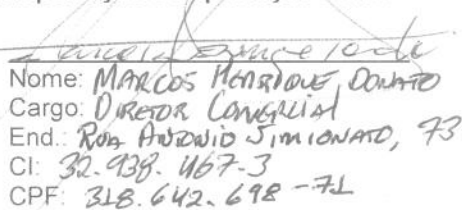 Nome: MARCOS HENRIQUE DONATO
Cargo: DIRETOR COMERCIAL
End.: RUA ANTONIO SIMIONATO, 73
CI: 32.938.467-3
CPF: 318.642.698-71